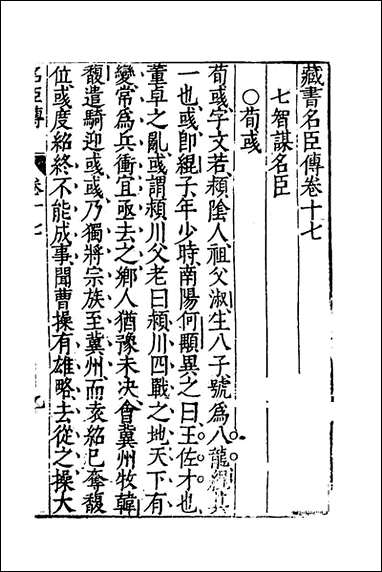 藏書名臣傳卷十七
七智謀名臣
○荀彧
荀彧字文若潁陰人祖父淑生八子號爲八龍緄其
一也彧卽緄子年少時南陽何顒異之曰王佐才也
董卓之亂彧謂潁川父老曰潁川四戰之地天下有
變常爲兵衝宜亟去之鄉人猶豫未决會冀州牧韓
馥遣騎迎彧彧乃獨將宗族至冀州而袁紹已奪馥
位彧度紹終不能成事聞曹操有雄略去從之操大
名臣傳 卷十七